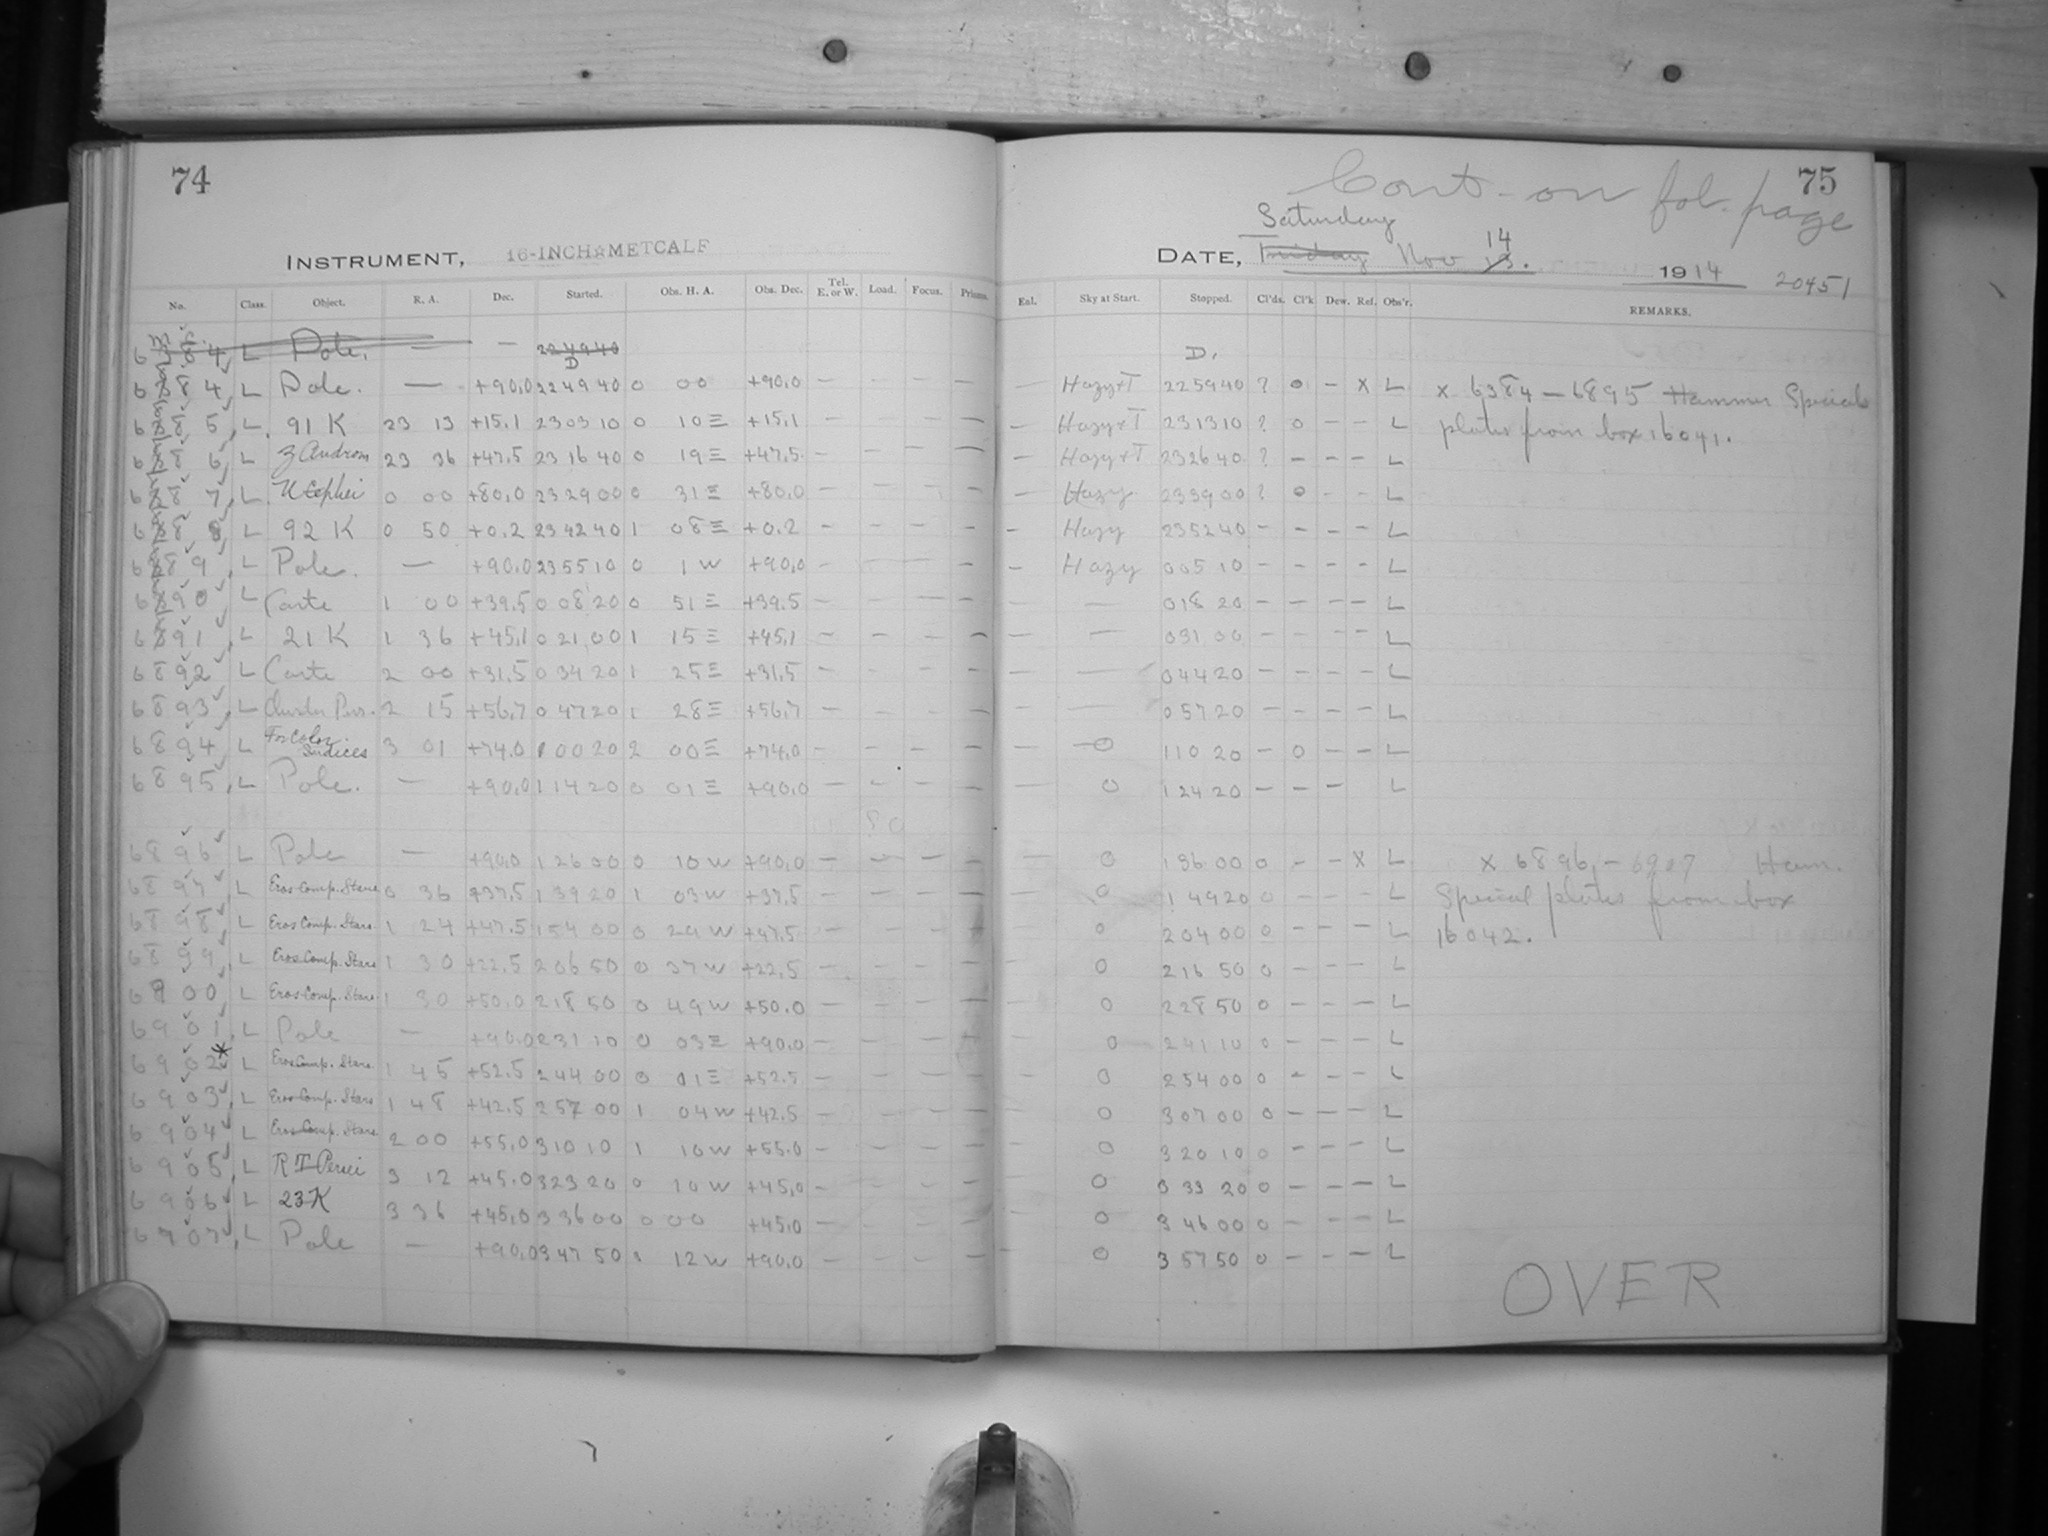 74
75
Cont - on fol. page
Saturday
INSTRUMENT, 16-INCH☆METCALF
DATE, Friday Nov 13. 14 1914 20451
No. Class. Object. R. A. Dec. Started. Obs. H. A. Obs. Dec. Tel. E. or W. Load. Focus. Prisms. Eal. Sky at Start. Stopped. Cl'ds. Cl'k Dew. Ref. Obs'r. REMARKS.
L Pole. — — 224940 D D.
6884 L Pole. — +90.0 224940 0 00 +90.0 — — — — — Hazy+T 225940 ? 0 — X L x 6384 — 6895 Hammer Special
6885 L 91 K 23 13 +15.1 230310 0 10 E +15.1 — — — — — Hazy+T 231310 ? 0 — — L plates from box 16041.
6886 L Z Androm 23 36 +47.5 231640 0 19 E +47.5 — — — — — Hazy+T 232640 ? — — — L
6887 L U Cephei 0 00 +80.0 232900 0 31 E +80.0 — — — — — Hazy 233900 ? 0 — — L
6888 L 92 K 0 50 +0.2 234240 1 08 E +0.2 — — — — — Hazy 235240 — — — — L
6889 L Pole. — +90.0 235510 0 1 W +90.0 — — — — — Hazy 00510 — — — — L
6890 L Carte 1 00 +39.5 00820 0 51 E +39.5 — — — — — — 01820 — — — — L
6891 L 21 K 1 36 +45.1 02100 1 15 E +45.1 — — — — — — 03100 — — — — L
6892 L Carte 2 00 +31.5 03420 1 25 E +31.5 — — — — — — 04420 — — — — L
6893 L Cluster Pers. 2 15 +56.7 04720 1 28 E +56.7 — — — — — — 05720 — — — — L
6894 L For Color Indices 3 01 +74.0 10020 2 00 E +74.0 — — — — — 0 11020 — 0 — — L
6895 L Pole. — +90.0 11420 0 01 E +90.0 — — — — — 0 12420 — — — L
6896 L Pole — +90.0 12600 0 10 W +90.0 — — — — — 0 13600 0 — — X L x 6896 — 6907 Ham.
6897 L Eros Comp. Stars 0 36 +37.5 13920 1 03 W +37.5 — — — — — 0 14920 0 — — — L Special plates from box
6898 L Eros Comp. Stars 1 24 +47.5 15400 0 29 W +47.5 — — — — — 0 20400 0 — — — L 16042.
6899 L Eros Comp. Stars 1 30 +22.5 20650 0 37 W +22.5 — — — — — 0 21650 0 — — — L
6900 L Eros Comp. Stars 1 30 +50.0 21850 0 49 W +50.0 — — — — — 0 22850 0 — — — L
6901 L Pole — +90.0 23110 0 03 E +90.0 — — — — — 0 24110 0 — — — L
6902* L Eros Comp. Stars 1 45 +52.5 24400 0 01 E +52.5 — — — — — 0 25400 0 — — — L
6903 L Eros Comp. Stars 1 48 +42.5 25700 1 04 W +42.5 — — — — — 0 30700 0 — — — L
6904 L Eros Comp. Stars 2 00 +55.0 31010 1 10 W +55.0 — — — — — 0 32010 0 — — — L
6905 L RT Persei 3 12 +45.0 32320 0 10 W +45.0 — — — — — 0 33320 0 — — — L
6906 L 23 K 3 36 +45.0 33600 0 00 +45.0 — — — — — 0 34600 0 — — — L
6907 L Pole — +90.0 34750 0 12 W +90.0 — — — — — 0 35750 0 — — — L
OVER